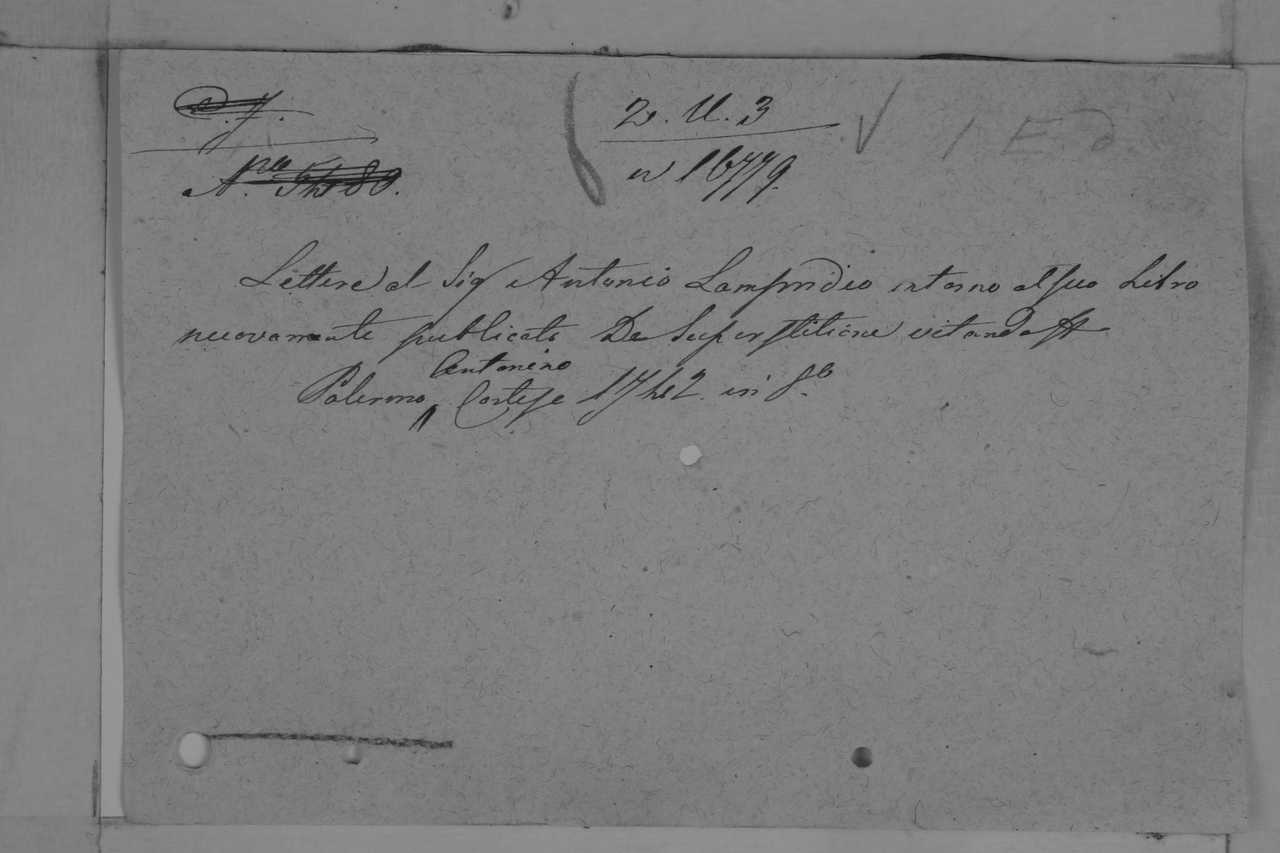 2. U. 3
n 16779.
1 Ed.
Lettere al Sig Antonio Lampridio intorno al suo Libro
nuovamente publicato De Superstitione vitanda
Antonino
Palermo Cortese 1742. in 8º.